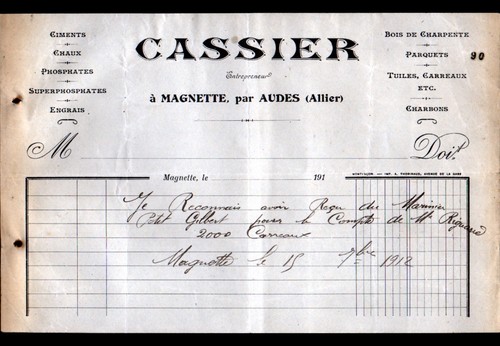 CIMENTS
CHAUX
PHOSPHATES
SUPERPHOSPHATES
ENGRAIS
CASSIER
Entrepreneur
à MAGNETTE, par AUDES (Allier)
BOIS DE CHARPENTE
PARQUETS
TUILES, CARREAUX
ETC.
CHARBONS
90
M
Doit
Magnette, le 191
MONTLUÇON — IMP. A. THORINAUD, AVENUE DE LA GARE
Je Reconnais avoir Reçu du Marinier
Petit Gilbert pour le Compte de Mr
2000 Carreaux
Magnette le 15 7bre 1912